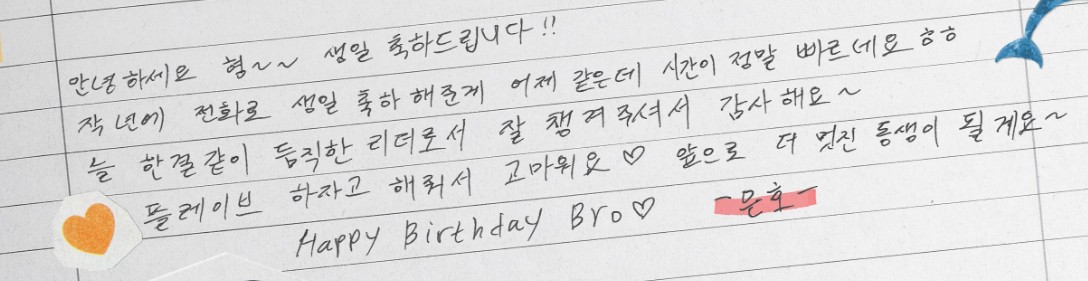 안녕하세요 형~~ 생일 축하드립니다!!
작년에 전화로 생일 축하 해준게 어제 같은데 시간이 정말 빠르네요ㅎㅎ
늘 한결같이 듬직한 리더로서 잘 챙겨주셔서 감사해요~
플레이브 하자고 해줘서 고마워요♡ 앞으로 더 멋진 동생이 될게요~
Happy Birthday Bro♡ -은호-